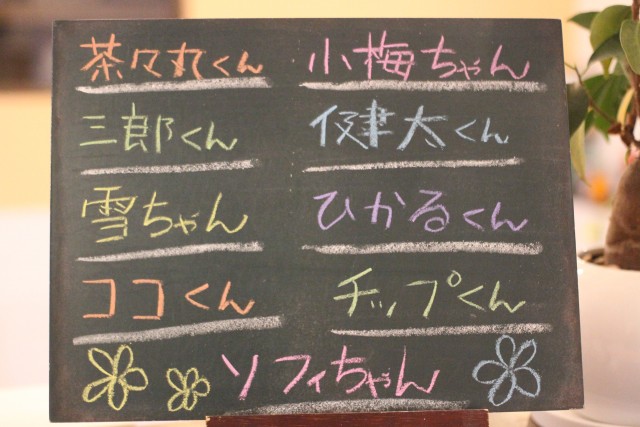 茶々丸くん 小梅ちゃん
三郎くん 健太くん
雪ちゃん ひかるくん
ココくん チップくん
ソフィちゃん